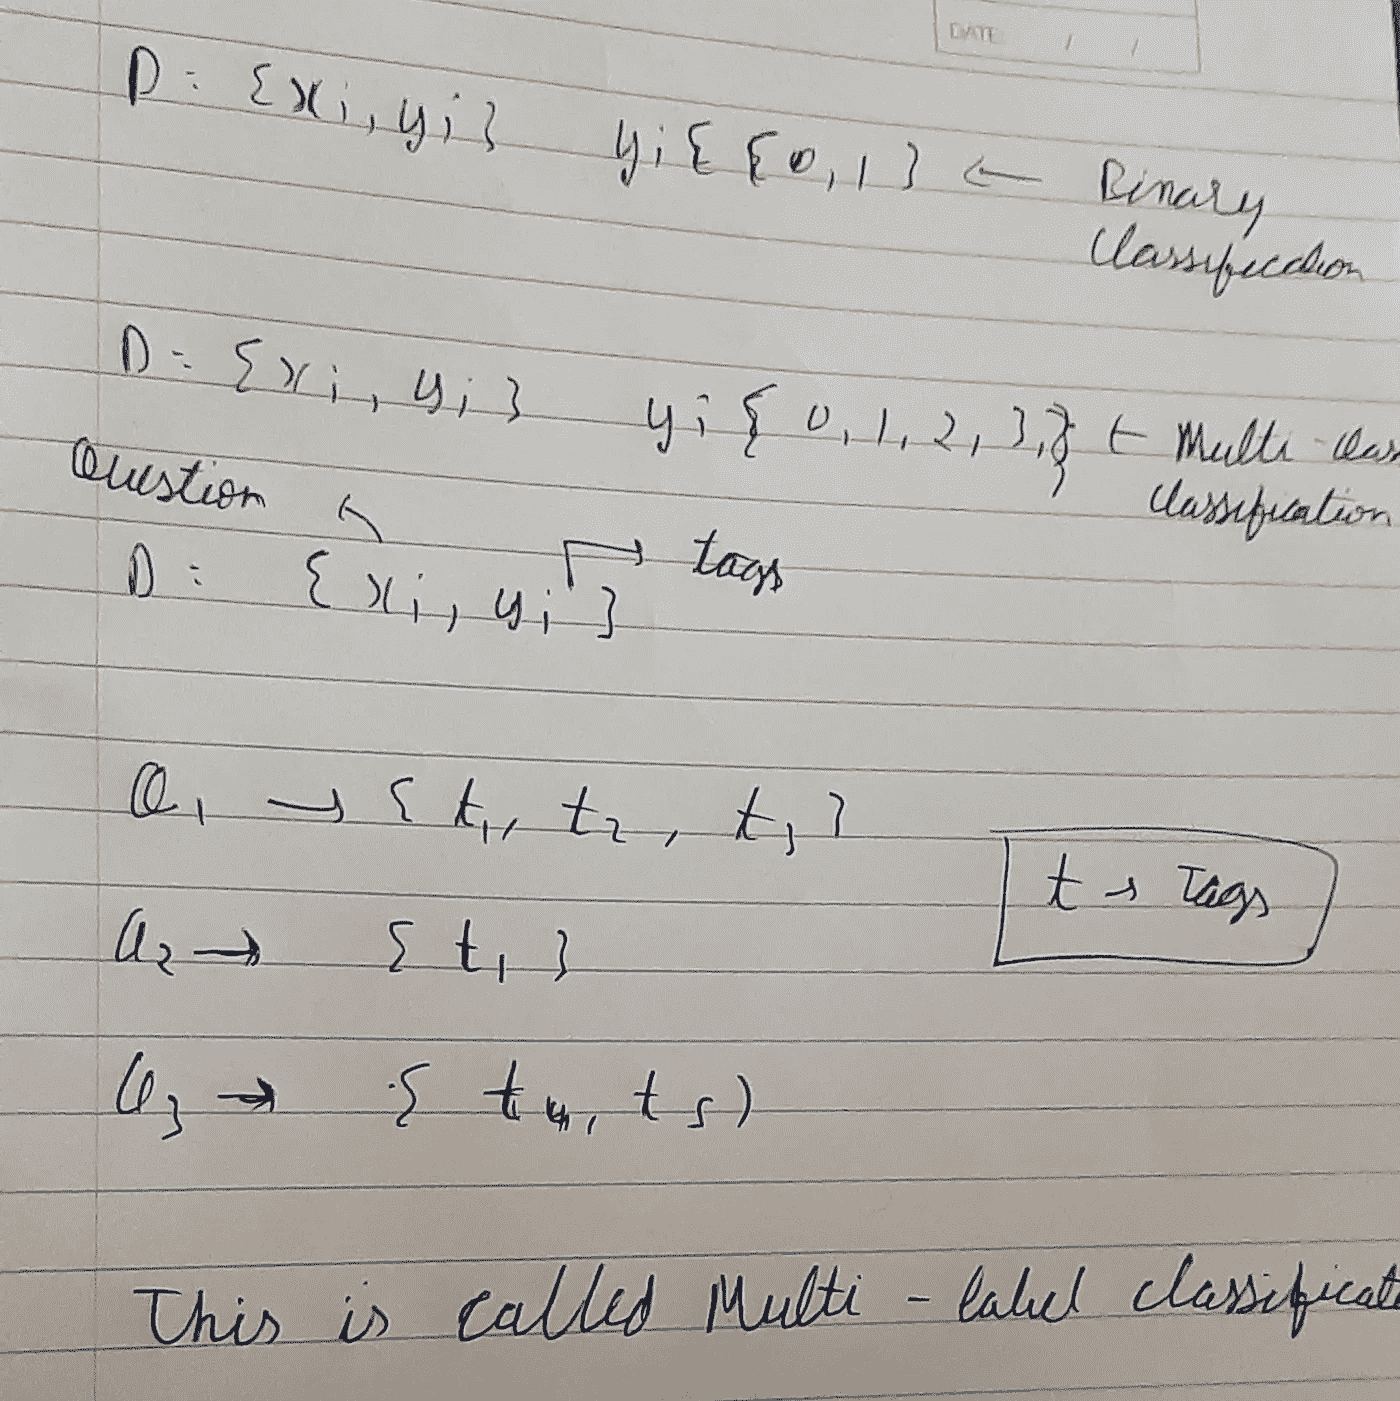 DATE: / /
D = {xi, yi} yi { {0, 1} ← Binary
Classification
D = {xi, yi} yi { 0, 1, 2, 3, } ← Multi-class
Classification
Question
tags
D = {xi, yi}
Q1 → {t1, t2, t3}
t → Tags
Q2 → {t1}
Q3 → {t4, t5)
This is called Multi - label classificat